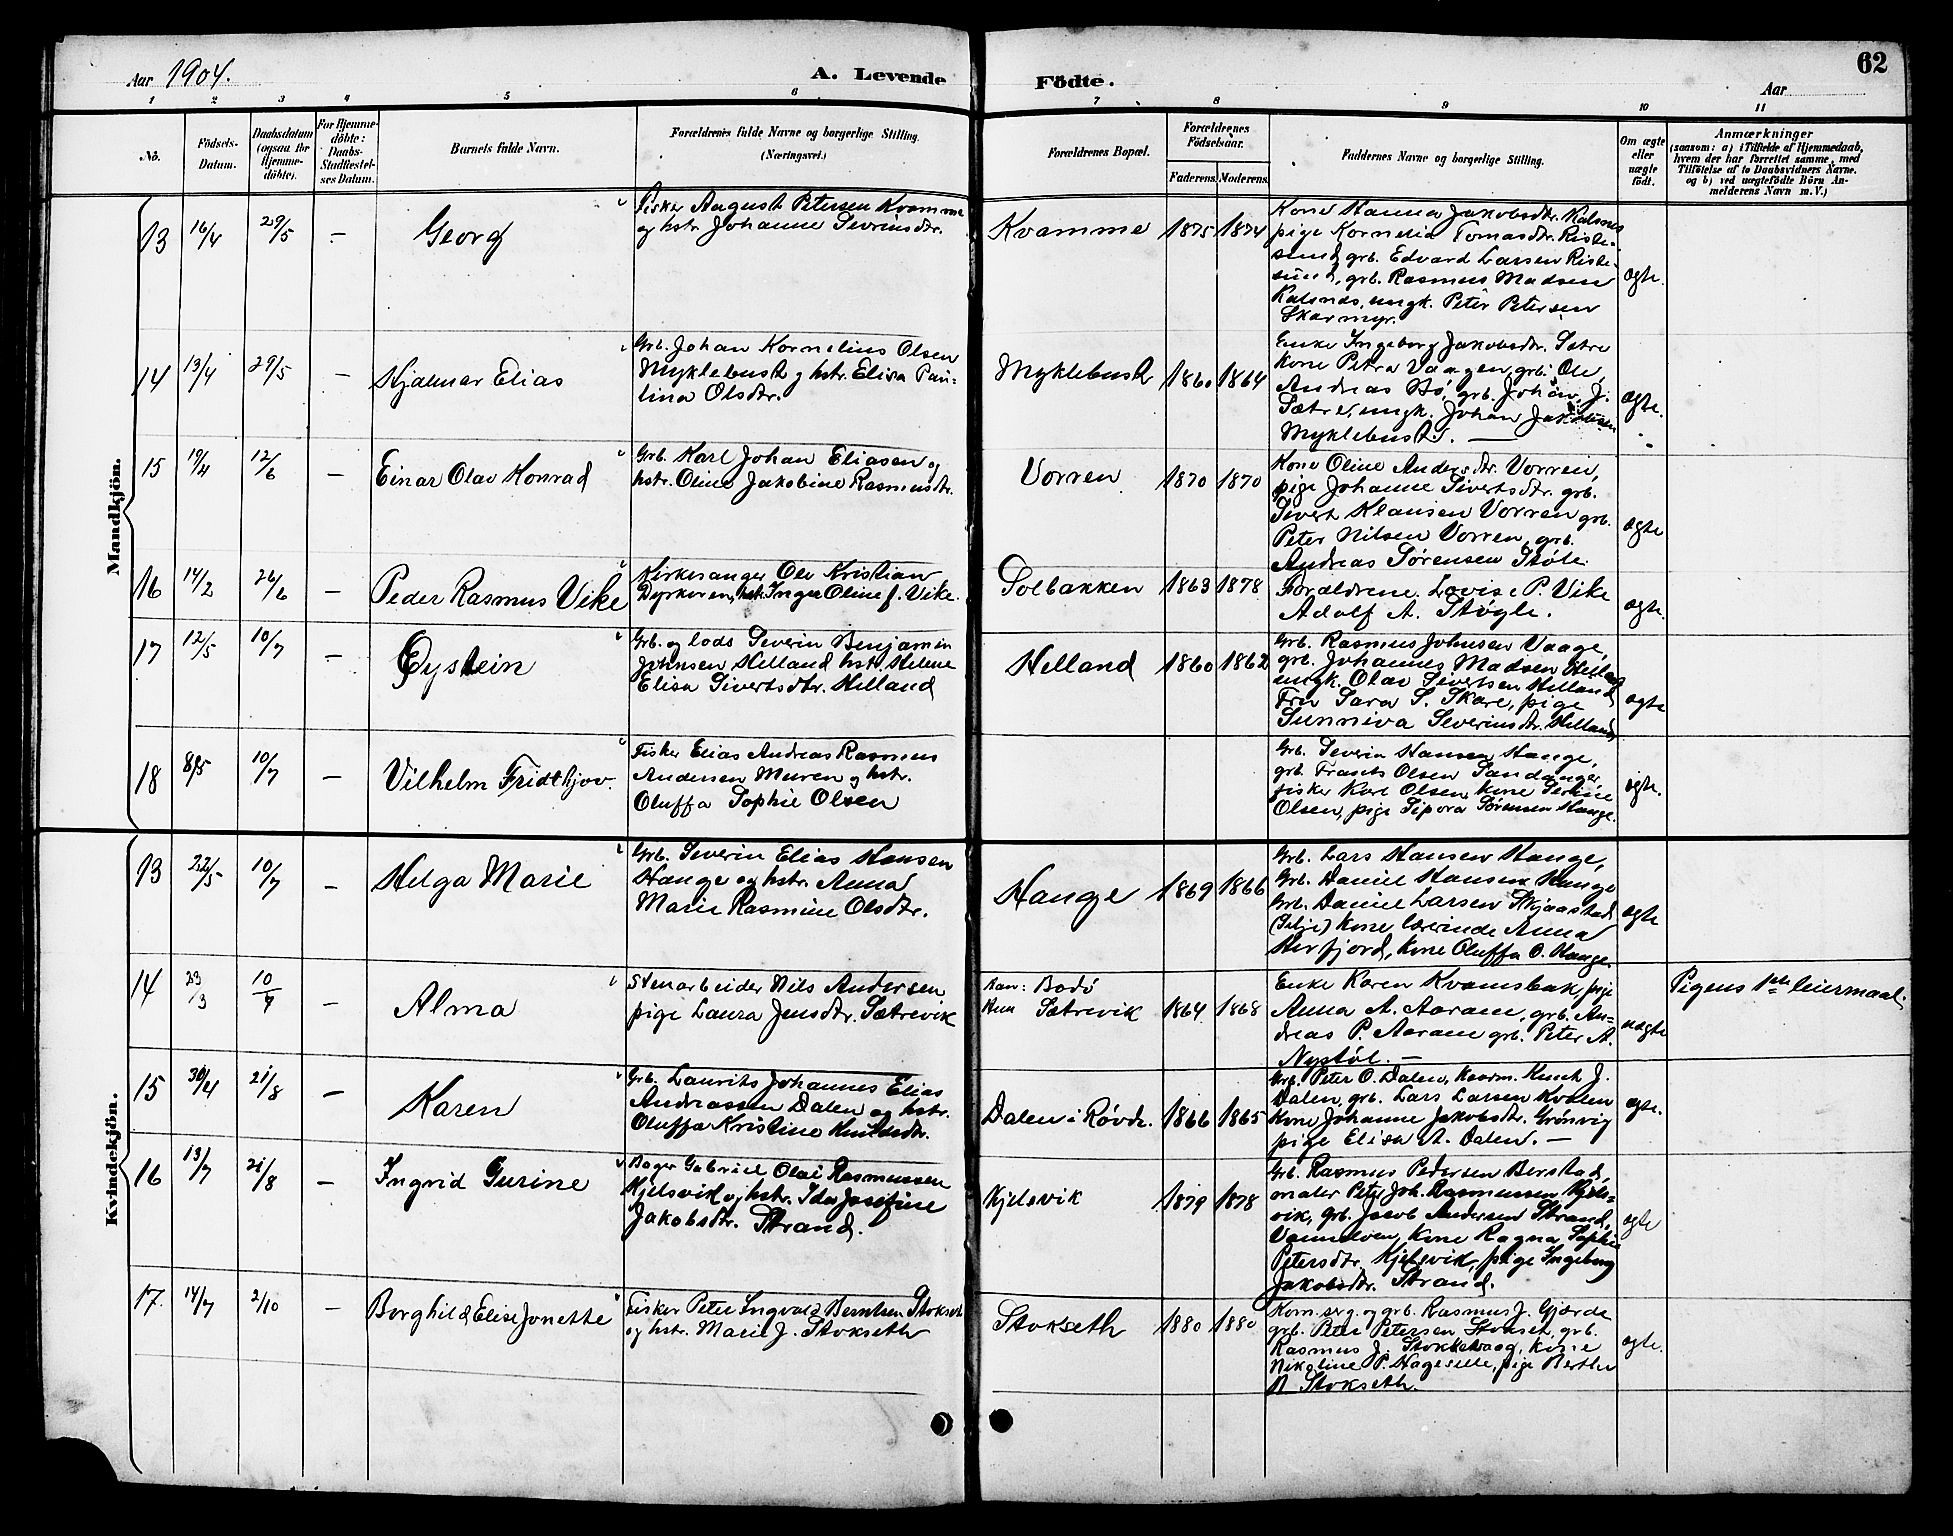 Aar 1904.
A. Levende
Födte.
62
Aar
1 2 3 4 5 6 7 8 9 10 11
No.
Födsels-
Datum.
Daabsdatum
(ogsaa for
Hjemme-
döbte).
For Hjemme-
döbte:
Daabs-
Stadfæstel-
ses Datum.
Barnets fulde Navn.
Forældrenes fulde Navne og borgerlige Stilling.
(Næringsvei.)
Forældrenes Bopæl.
Forældrenes
Födselsaar.
Faderens. Moderens.
Faddernes Navne og borgerlige Stilling.
Om ægte
eller
uægte
födt.
Anmærkninger
(saasom: a) i Tilfælde af Hjemmedaab,
hvem der har forrettet samme, med
Tilföielse af to Daabsvidners Navne.
og b) ved uægtefödte Börn An-
melderens Navn m. V.)
Mandkjön.
13 16/4 29/5 — Georg
Fisker August Petersen Kvamme
og hstr. Johanne Severinsdtr.
Kvamme 1875 1874
Kone Hanna Jakobsdtr. Kalsnes
pige Kornelia Tomasdtr. Riste-
sund, grb. Edvard Larsen Riste-
sund, grb. Rasmus Madsen
Kalsnes, ungk. Peter Petersen
Skarmyr.
ægte.
14 13/4 29/5 — Hjalmar Elias
Grb. Johan Kornelius Olsen
Myklebust og hstr. Elisa Pau-
lina Olsdtr.
Myklebust 1860 1864
Enke Ingeborg Jakobsdtr. Sætre
kone Petra Vaagen, grb. Ole
Andreas Bö, grb. Johan J.
Sætre, ungk. Johan Jakobsen
Myklebust. —
ægte.
15 19/4 12/6 — Einar Olav Konrad
Grb. Karl Johan Eliasen og
hstr. Oline Jakobine Rasmusdtr.
Vorren 1870 1870
Kone Oline Andersdtr. Vorren,
pige Johanne Sivertsdtr. grb.
Sivert Klausen Vorren grb.
Peter Nilsen Vorren, grb.
Andreas Sørensen Støle.
ægte
16 14/2 26/6 — Peder Rasmus Vike
Kirkesanger Ole Kristian
Dyrkoren, hstr. Inga Oline f. Vike.
Solbakken 1863 1878
Forældrene. Lovise P. Vike
Adolf A. Støyle.
ægte.
17 12/5 10/7 — Øystein
Grb. og lods Severin Benjamin
Johnsen Helland hstr. Helene
Elisa Sivertsdtr. Helland
Helland 1860 1862
Grb. Rasmus Johnsen Vaage,
grb. Johannes Madsen Helland
ungk. Olav Severtsen Helland
Fru Sara S. Skare, pige
Sunniva Severinsdtr. Helland
ægte
18 8/5 10/7 — Vilhelm Fridthjov.
Fisker Elias Andreas Rasmus
Andersen Muren og hstr.
Oluffa Sophie Olsen
Grb. Severin Hansen Hauge,
grb. Frants Olsen Sandanger
fisker Karl Olsen, kone Serine
Olsen, pige Sipora Sørensen Hauge.
ægte.
Kvindekjön.
13 22/5 10/7 — Helga Marie
Grb. Severin Elias Hansen
Hauge og hstr. Anna
Marie Rasmine Olsdtr.
Hauge 1869 1866
Grb. Lars Hansen Hauge,
Grb. Daniel Hansen Hauge
Grb. Daniel Larsen Skjaastad
(Silje) Kone lærerinde Anna
Herfjord, Kone Oluffa O. Hauge.
ægte
14 23/3 10/7 — Alma
Stenarbeider Nils Andersen
pige Laura Jensdtr. Sætrevik
Han: Bodö
Hun Sætrevik 1864 1868
Enke Karen Kvamsbak, pige
Anna A. Aaram, grb. An-
dreas P. Aaram grb. Peter A.
Nystöl. —
uægte
Pigens 1ste leiermaal.
15 30/4 21/8 — Karen
Grb. Laurits Johannes Elias
Andreassen Dalen og hstr.
Oluffa Kristine Knutsdtr.
Dalen i Røvde. 1866 1865
Grb. Peter O. Dalen, Kaarm. Knut J.
Dalen, grb. Lars Larsen Kvalen
kone Johanne Jakobsdtr. Grönvig
pige Elisa A. Dalen. —
ægte.
16 13/7 21/8 — Ingrid Gurine
Bager Gabriel Olai Rasmussen
Kjelsvik og hstr. Ida Josefine
Jakobsdtr. Strand.
Kjelsvik 1879 1878
Grb. Rasmus Pedersen Berstad,
maler Peter Joh. Rasmussen Kjels-
vik, grb. Jacob Andersen Strand,
Vannelven, kone Ragna Sophie
Petersdtr. Kjelsvik, pige Ingeborg
Jakobsdtr. Strand.
ægte
17. 14/7 2/10 — Borghild Elise Jonette
Fisker Peter Ingvald Berntsen Stokset
og hstr. Marie J. Stokseth
Stokseth 1880 1880
Kom. serg. og grb. Rasmus J. Gjærde
grb. Peter Petersen Stokset, grb.
Rasmus J. Stokkevaag, kone
Nikoline P. Hageselle, pige Berthe
B Stokseth.
ægte.